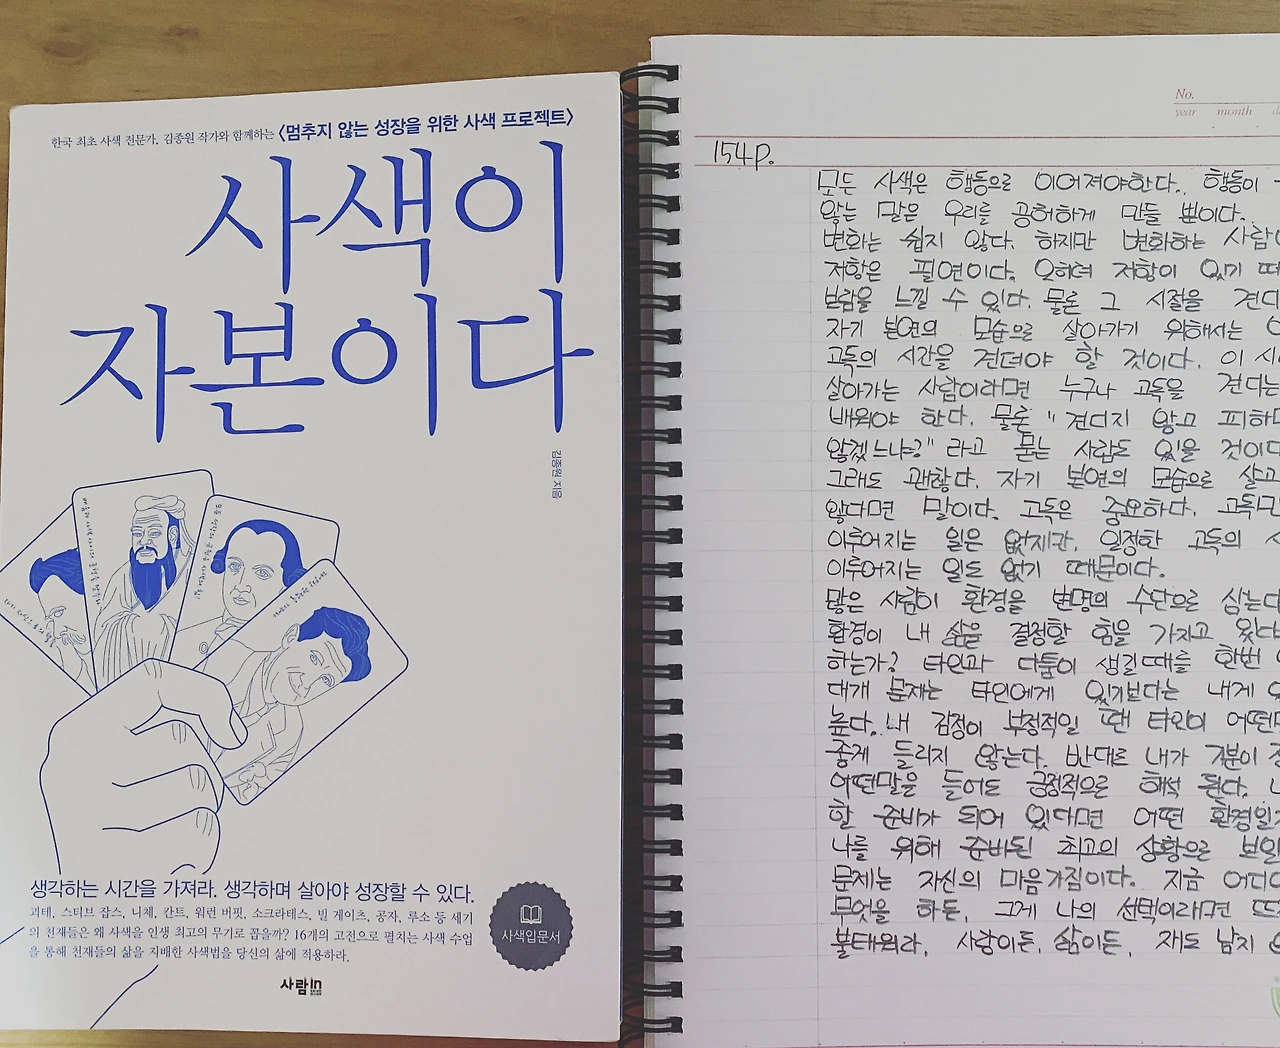 한국 최초 사색 전문가, 김종원 작가와 함께하는 〈멈추지 않는 성장을 위한 사색 프로젝트〉
사색이
자본이다
김종원 지음
생각하는 시간을 가져라. 생각하며 살아야 성장할 수 있다.
괴테, 스티브 잡스, 니체, 칸트, 워런 버핏, 소크라테스, 빌 게이츠, 공자, 루소 등 세기
의 천재들은 왜 사색을 인생 최고의 무기로 꼽을까? 16개의 고전으로 펼치는 사색 수업
을 통해 천재들의 삶을 지배한 사색법을 당신의 삶에 적용하라.
사색입문서
사람in
No.
year month
154p.
모든 사색은 행동으로 이어져야한다. 행동이
않는 말은 우리를 공허하게 만들 뿐이다.
변화는 쉽지 않다. 하지만 변화하는 사람
저항은 필연이다. 오히려 저항이 있기
보람을 느낄 수 있다. 물론 그 시절을 견디
자기 본연의 모습으로 살아가기 위해서는
고독의 시간을 견뎌야 할 것이다. 이
살아가는 사람이라면 누구나 고독을 견디는
배워야 한다. 물론 "견디지 않고 피하면
않겠느냐?" 라고 묻는 사람도 있을 것이다
그래도 괜찮다. 자기 본연의 모습으로 살고
않다면 말이다. 고독은 중요하다. 고독만
이루어지는 일은 없지만, 일정한 고독의
이루어지는 일도 없기 때문이다.
많은 사람이 환경을 변명의 수단으로 삼는다
환경이 내 삶을 결정할 힘을 가지고 있다
하는가? 타인과 다툼이 생길때를 한번
대개 문제는 타인에게 있기보다는 내게
높다. 내 감정이 부정적일 땐 타인이 어떤
좋게 들리지 않는다. 반대로 내가 기분이
어떤말을 들어도 긍정적으로 해석 된다.
할 준비가 되어 있다면 어떤 환경일지
나를 위해 준비된 최고의 상황으로 보일
문제는 자신의 마음가짐이다. 지금 어디
무엇을 하든, 그게 나의 선택이라면 뜨
불태워라, 사랑이든, 삶이든, 재도 남지